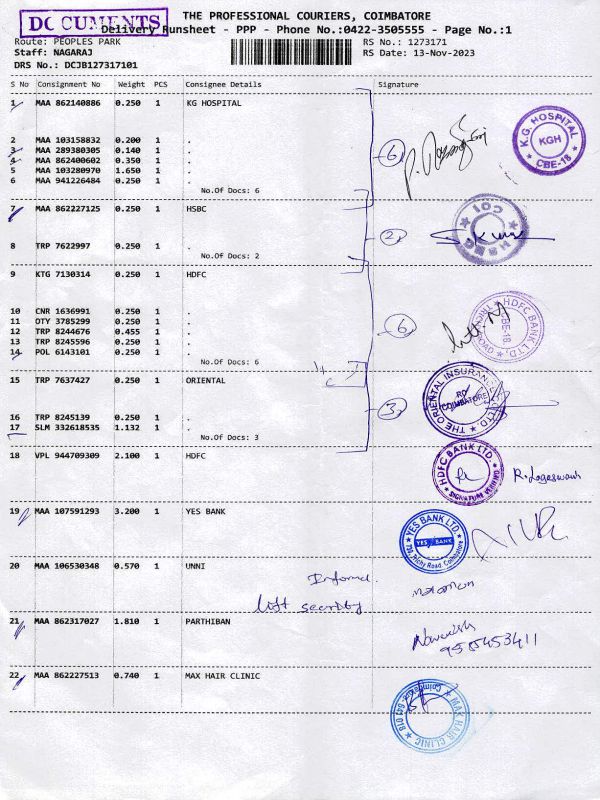 DOCUMENTS
THE PROFESSIONAL COURIERS, COIMBATORE
Delivery Runsheet - PPP - Phone No.:0422-3505555 - Page No.:1
Route: PEOPLES PARK
RS No.: 1273171
Staff: NAGARAJ
RS Date: 13-Nov-2023
DRS No.: DCJB127317101
S No Consignment No Weight PCS Consignee Details Signature
1 MAA 862140886 0.250 1 KG HOSPITAL
2 MAA 103158832 0.200 1 .
3 MAA 289380305 0.140 1 .
4 MAA 862400602 0.350 1 .
5 MAA 103280970 1.650 1 .
6 MAA 941226484 0.250 1 .
No.Of Docs: 6
6
K.G. HOSPITAL
KGH
CBE-18
7 MAA 862227125 0.250 1 HSBC
8 TRP 7622997 0.250 1 .
No.Of Docs: 2
2
9 KTG 7130314 0.250 1 HDFC
10 CNR 1636991 0.250 1 .
11 OTY 3785299 0.250 1 .
12 TRP 8244676 0.455 1 .
13 TRP 8245596 0.250 1 .
14 POL 6143101 0.250 1 .
No.Of Docs: 6
6
HDFC BANK LTD,
CBE-18
15 TRP 7637427 0.250 1 ORIENTAL
16 TRP 8245139 0.250 1 .
17 SLM 332618535 1.132 1 .
No.Of Docs: 3
3
THE ORIENTAL INSURANCE
RO
COIMBATORE
18 VPL 944709309 2.100 1 HDFC
HDFC BANK LTD.
SIGNATURE VERIFIED
R. Logeswari
19 MAA 107591293 3.200 1 YES BANK
YES BANK LTD.
YES BANK
Trichy Road, Coimbatore
20 MAA 106530348 0.570 1 UNNI
Informed.
lift security
21 MAA 862317027 1.810 1 PARTHIBAN
22 MAA 862227513 0.740 1 MAX HAIR CLINIC
MAX HAIR CLINIC